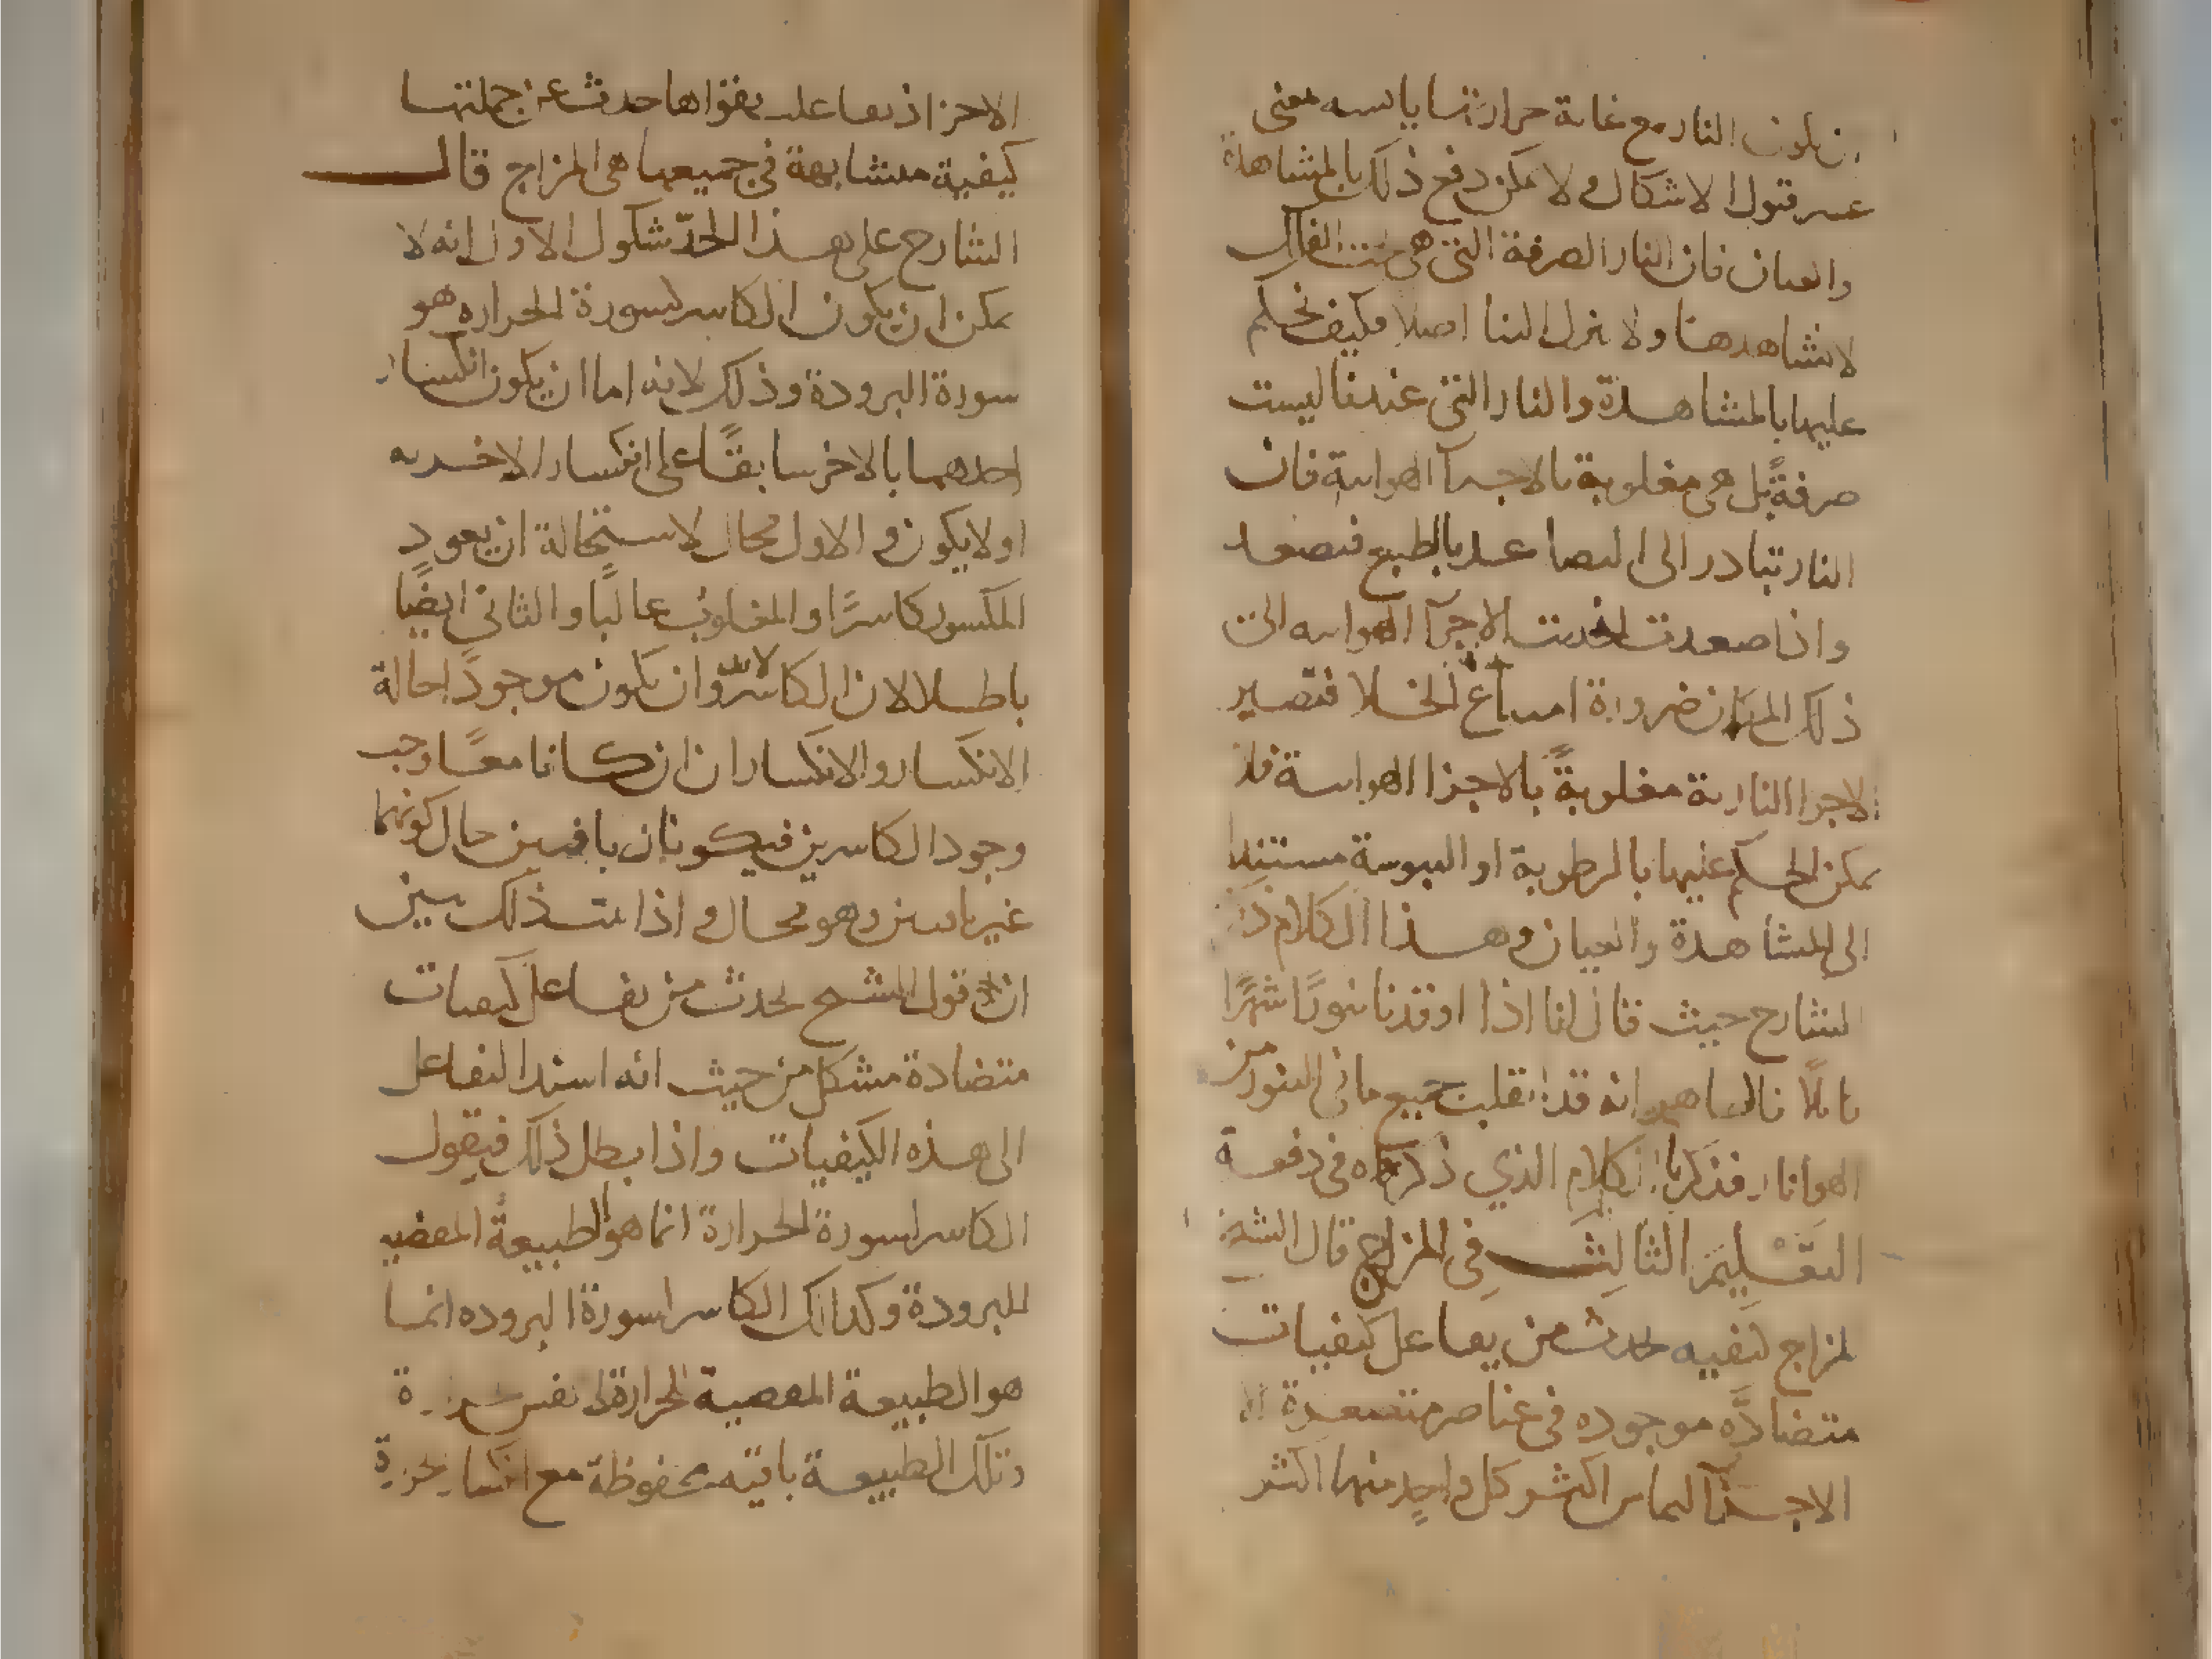 ن تكون النار مع غاية حرارتها يابسه بمعنى
عسر قبول الاشكال ولا يمكن دفع ذلك بالمشاهدة
والعيان فان النار الصرفة التى هى تحت الفلك
لا نشاهدها ولا ينزل الينا اصلا فكيف نحكم
عليها بالمشاهدة والنار التى عندنا ليست
صرفةً بل هى مغلوبة بالاجزآ الهوايية فان
النار تبادر الى التصاعد بالطبع فتصعد
واذا صعدت الاجزآ الهواييه الى
ذلك المكان ضرورة امتناع الخلا فتصير
الاجزا النارية مغلوبةً بالاجزا الهوايية فلا
يمكن الحكم عليها بالرطوبة او اليبوسة مستندا
الى المشاهدة والعيان وهذا الكلام
الشارح حيث قال انا اذا اوقدنا تنورًا شهرًا
كاملًا فالظاهر انه قد انقلب جميع ما فى التنور من
الهوا نارا فذكرنا الكلام الذي ذكرناه فى دفعه
التعليم الثالث فى المزاج قال الشيخ
المزاج كيفيه تحدث من تفاعل كيفيات
متضادّه موجوده فى عناصر متصغرة
الاجزآ ليماس اكثر كل واحدٍ منها اكثر
الاخر اذا تفاعلت بقواها حدثت عن جملتها
كيفية متشابهة فى جميعها هى المزاج قال
الشارح على هذا الحدّ شكوك الاول انه لا
يمكن ان يكون الكاسر لسورة الحراره هو
سورة البرودة وذلك لانه اما ان يكون انكسار
احدهما بالاخر سابقًا على انكسار الاخر به
او لا يكون و الاول محال لاستحالة ان يعود
المكسور كاسرًا والمغلوب غالبًا والثانى ايضًا
باطل لان الكاسر لابد وان يكون موجودًا حالة
الانكسار والانكساران ان كانا معًا وجب
وجود الكاسرين فيكونان باقيين حال كونهما
غير باقيين وهو محال واذا ثبت ذلك تبين
ان قول الشيخ يحدث من تفاعل كيفيات
متضادة مشكل من حيث انه اسند التفاعل
الى هذه الكيفيات واذا بطل ذلك فيقول
الكاسر لسورة الحرارة انما هو الطبيعةُ المقتضيه
للبرودة وكذلك الكاسر لسورة البروده انما
هو الطبيعة المقتضية للحرارة لا نفس
وتلك الطبيعة باقيه محفوظة مع انكسار